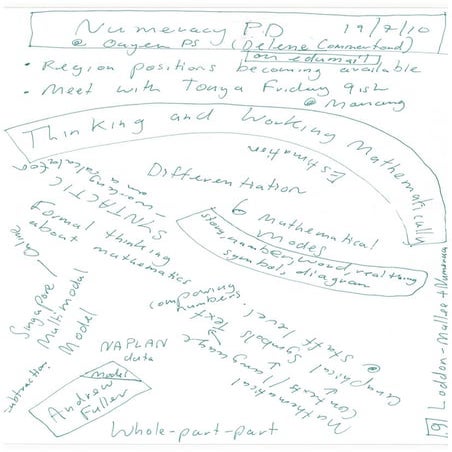 Numeracy P.D 19/7/10
@ Ouyen PS (Delene Commerford)
on edumail
• Region positions becoming available
• Meet with Tonya Friday 9ish
@ Manang
Thinking and Working Mathematically
Estimation
Differentiation
SYNTACTIC
- working
on a calculator
6 Mathematical
modes
story, number, word, real thing
symbols, diagram
Formal thinking
about mathematics
composing
numbers.
Singapore
Multimodal
Model
NAPLAN
data
Model
Andrew
Fuller
subtraction
Mathematical
language
Text
Contexts //
Graphical Symbols
@
staff level
Whole-part-part
Loddon-Mallee + Numeracy